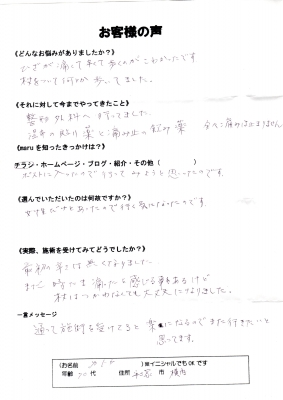 お客様の声
《どんなお悩みがありましたか？》
ひざが痛くて歩くのがこわかったです
杖をついて何とか歩いてました。
《それに対して今までやってきたこと》
整形外科へ行ってました。
温布の貼り薬と痛み止の飲み薬 全く痛みは止まりません
《maruを知ったきっかけは？》
チラシ・ホームページ・ブログ・紹介・その他（　　　）
ポストに入ってたので行ってみようと思ったのです。
《選んでいただいたのは何故ですか？》
女性だけとあったので行く気になったのです。
《実際、施術を受けてみてどうでしたか？》
最初の辛さは無くなりました。
まだ時々は痛たを感じる事あるけど
杖はつかわなくても大丈夫になりました。
一言メッセージ
通って施術を受けてると楽になるのでまた行きたいと
思ってます。
（お名前　　　）※イニシャルでもOKです
年齢　代　住所　市